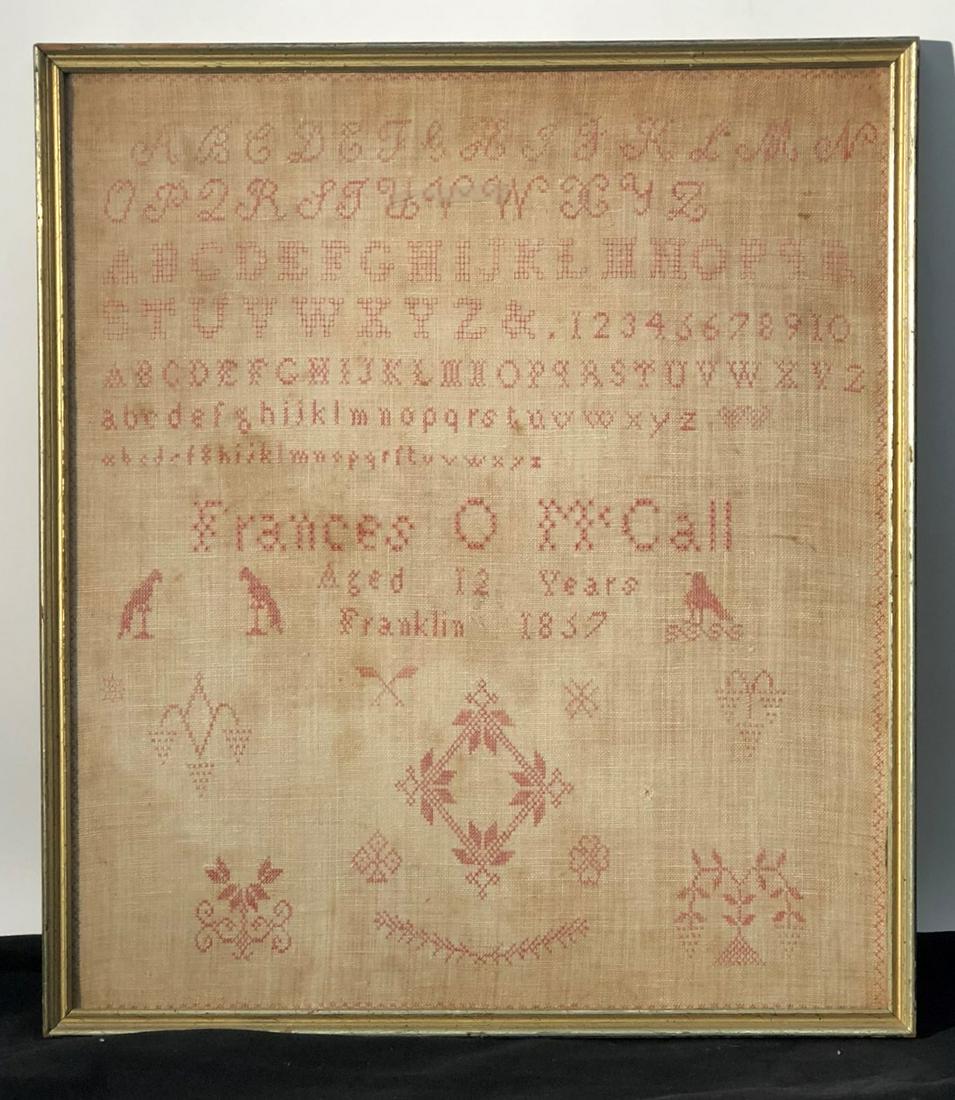 A B C D E F G H I J K L M N
O P Q R S T U V W X Y Z
A B C D E F G H I J K L M N O P Q R
S T U V W X Y Z & . 1 2 3 4 5 6 7 8 9 10
A B C D E F G H I J K L M N O P Q R S T U V W X Y Z
a b c d e f g h i j k l m n o p q r s t u v w x y z
a b c d e f g h i j k l m n o p q r ſ t u v w x y z
Frances O McCall
Aged 12 Years
Franklin 1857